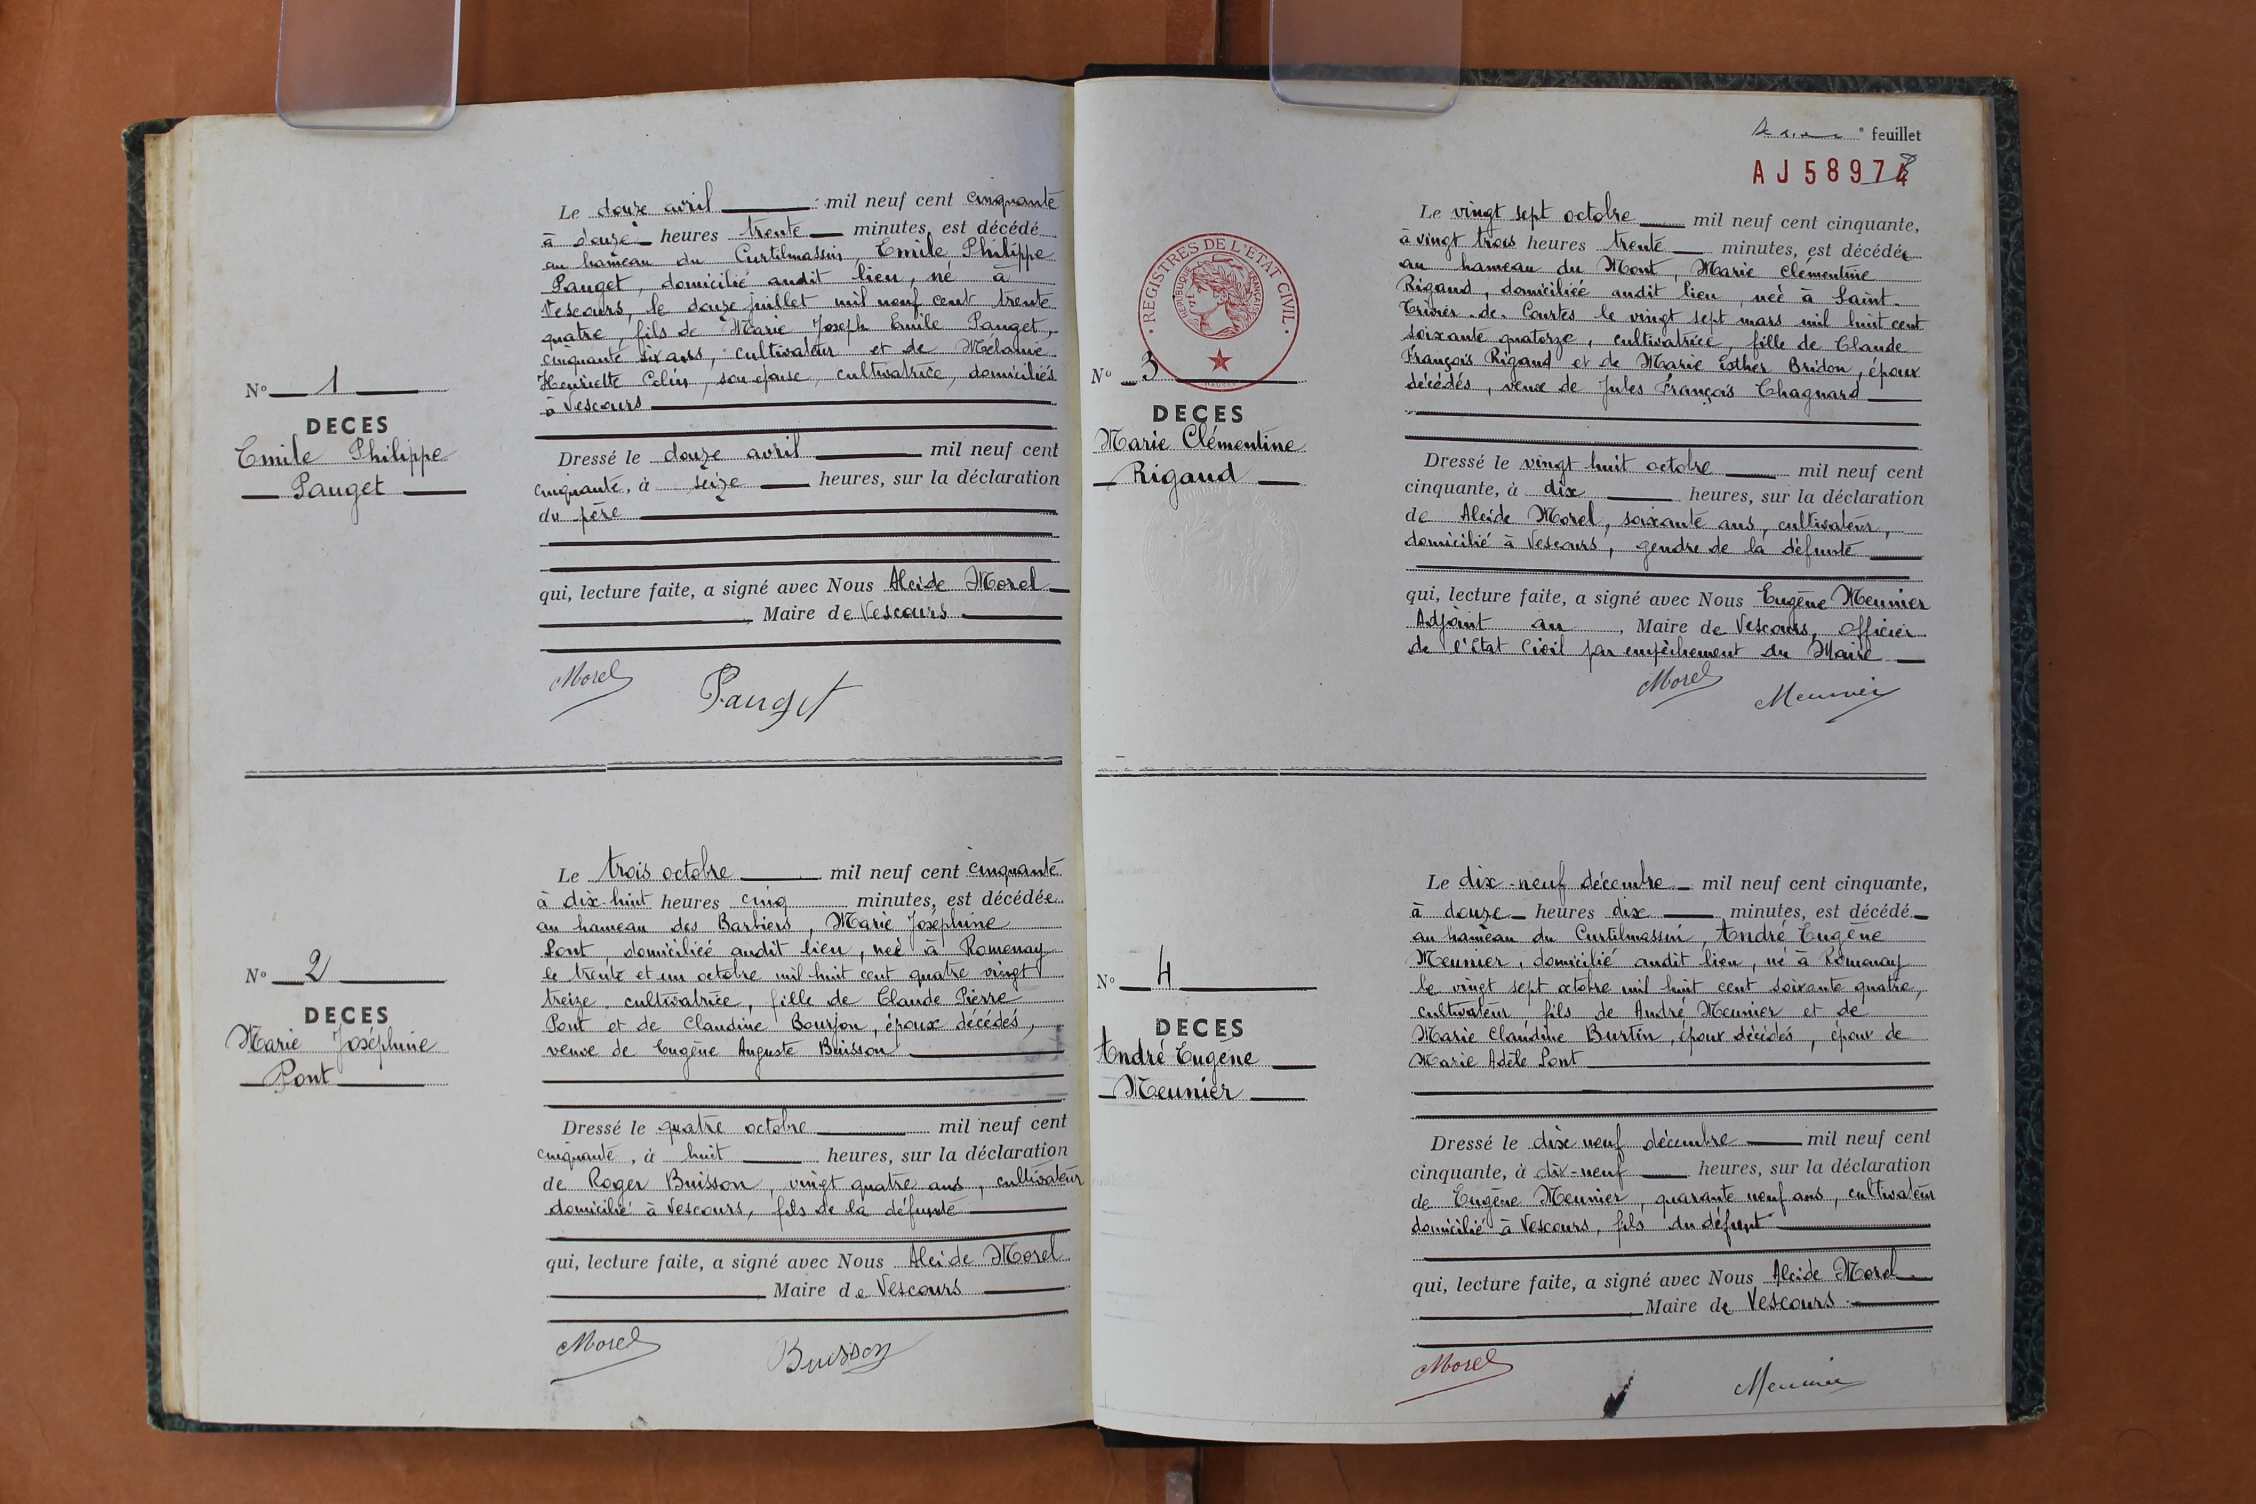 N° 1
DECES
Emile Philippe
Pauget
Le douze avril mil neuf cent cinquante
à douze heures trente minutes, est décédé
au hameau du Curtilmassin, Emile Philippe
Pauget, domicilié audit lieu, né à
Vescours, le douze juillet mil neuf cent trente
quatre, fils de Marie Joseph Emile Pauget,
cinquante six ans, cultivateur et de Mélanie
Henriette Colin, son épouse, cultivatrice, domiciliés
à Vescours
Dressé le douze avril mil neuf cent
cinquante, à seize heures, sur la déclaration
du père
qui, lecture faite, a signé avec Nous Alcide Morel
Maire de Vescours
Morel Pauget
N° 2
DECES
Marie Joséphine
Pont
Le trois octobre mil neuf cent cinquante
à dix-huit heures cinq minutes, est décédée
au hameau des Barbiers, Marie Joséphine
Pont, domiciliée audit lieu, née à Romenay
le trente et un octobre mil huit cent quatre vingt
treize, cultivatrice, fille de Claude Pierre
Pont et de Claudine Bourjon, époux décédés,
veuve de Eugène Auguste Buisson
Dressé le quatre octobre mil neuf cent
cinquante, à huit heures, sur la déclaration
de Roger Buisson, vingt quatre ans, cultivateur
domicilié à Vescours, fils de la défunte
qui, lecture faite, a signé avec Nous Alcide Morel
Maire de Vescours
Morel Buisson
° feuillet
AJ5897
REGISTRES DE L'ETAT CIVIL
REPUBLIQUE FRANÇAISE
N° 3
DECES
Marie Clémentine
Rigaud
Le vingt sept octobre mil neuf cent cinquante,
à vingt trois heures trente minutes, est décédée
au hameau du Mont, Marie Clémentine
Rigaud, domiciliée audit lieu, née à Saint-
Trivier-de-Courtes le vingt sept mars mil huit cent
soixante quatorze, cultivatrice, fille de Claude
François Rigaud et de Marie Esther Bridon, époux
décédés, veuve de Jules François Chagnard
Dressé le vingt huit octobre mil neuf cent
cinquante, à dix heures, sur la déclaration
de Alcide Morel, soixante ans, cultivateur,
domicilié à Vescours, gendre de la défunte
qui, lecture faite, a signé avec Nous Eugène Meunier
Adjoint au, Maire de Vescours, officier
de l'Etat Civil par empêchement du Maire
Morel Meunier
N° 4
DECES
André Eugène
Meunier
Le dix-neuf décembre mil neuf cent cinquante,
à douze heures dix minutes, est décédé
au hameau du Curtilmassin, André Eugène
Meunier, domicilié audit lieu, né à Romenay
le vingt sept octobre mil huit cent soixante quatre,
cultivateur, fils de André Meunier et de
Marie Claudine Burtin, époux décédés, époux de
Marie Adèle Pont
Dressé le dix neuf décembre mil neuf cent
cinquante, à dix-neuf heures, sur la déclaration
de Eugène Meunier, quarante neuf ans, cultivateur
domicilié à Vescours, fils du défunt
qui, lecture faite, a signé avec Nous Alcide Morel
Maire de Vescours
Morel Meunier